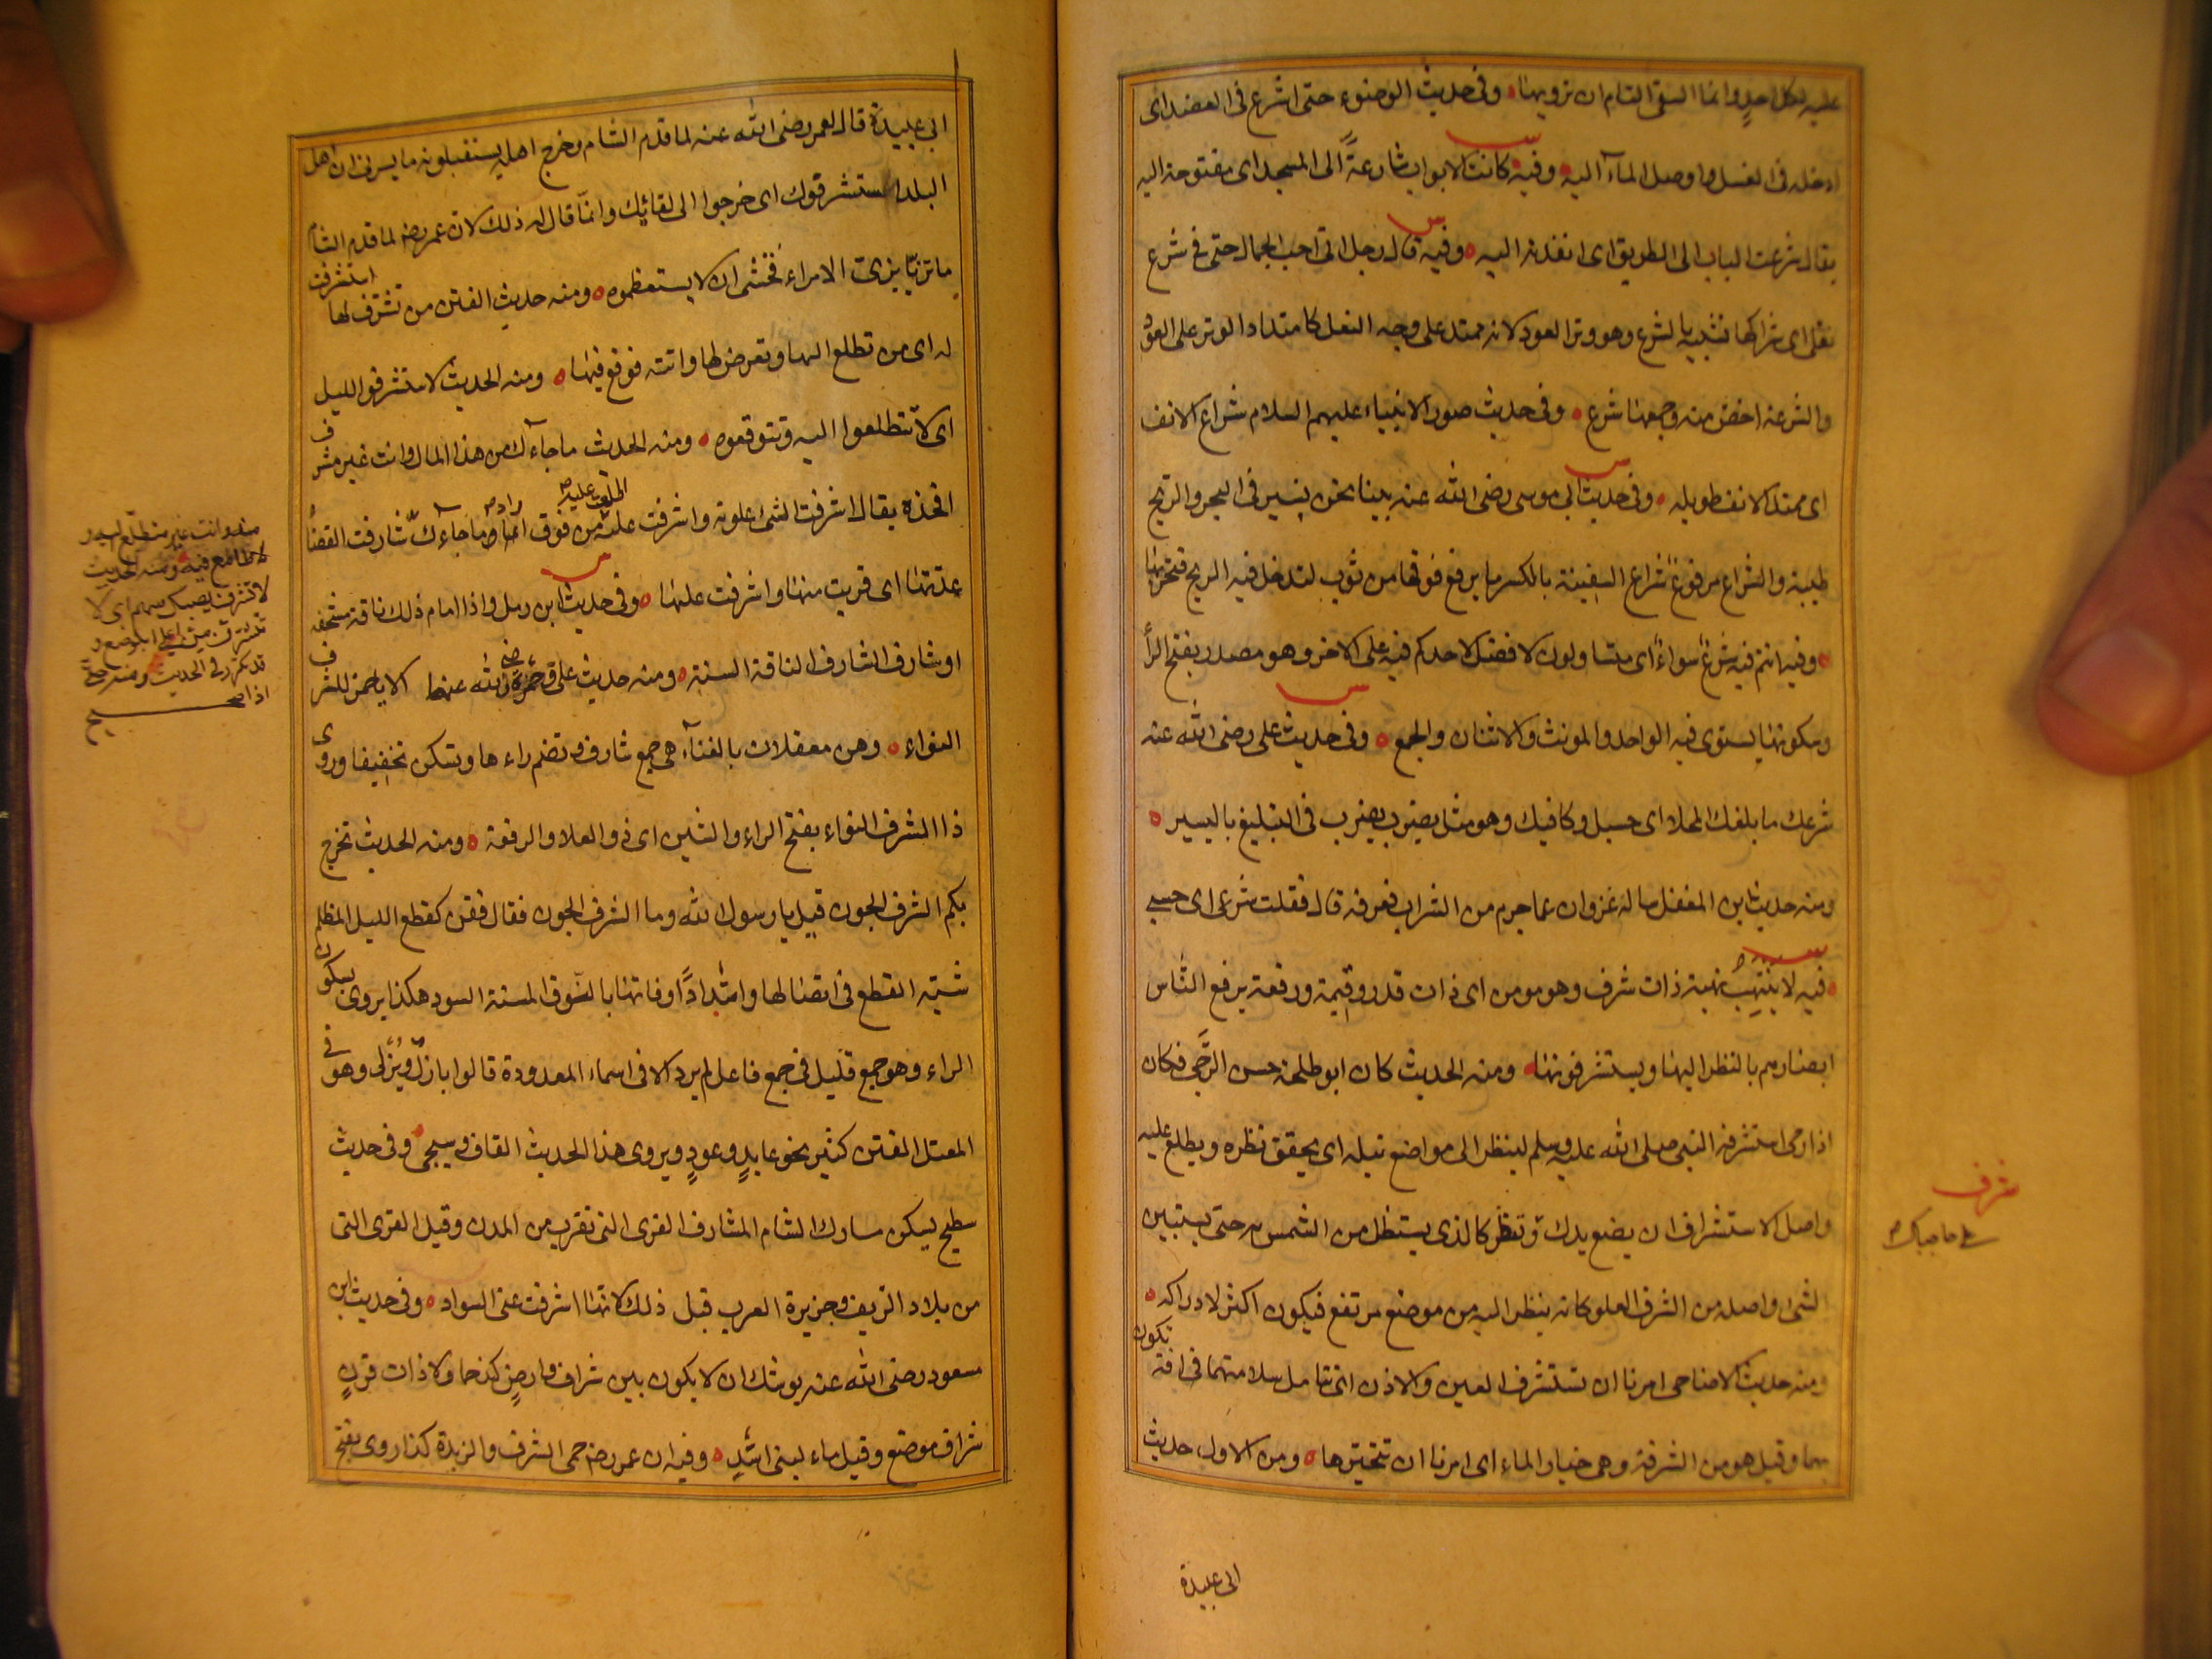 عليه لكل احدٍ وانما السقى التام ان ترويها وفى حديث الوضوء حتى اشرع فى العضد اى
ادخله فى الغسل واوصل المآء اليه وفيه كانت الابواب شارعةً الى المسجد اى مفتوحة اليه
يقال شرعت الباب الى الطريق اى انفذته اليه وفيه قال رجل انى احب الجمال حتى فى شرع
نعلى اى شراكها تشبيه بالشرع وهو وتر العود لانه ممتد على وجه النعل كامتداد الوتر على العود
والشرعة اخص منه وجمعها شرع وفى حديث صور الانبياء عليهم السلام شراع الانف
اى ممتد الانف طويله وفى حديث ابى موسى رضى الله عنه بينا نحن نسير فى البحر والريح
طيبة والشراع مرفوع شراع السفينة بالكسر ما يرفع فوقها من ثوب لتدخل فيه الريح فتجريها
وفيه انتم فيه شرع سواء اى متساوون لا فضل لاحدكم فيه على الاخر وهو مصدر بفتح الرا
وسكونها يستوى فيه الواحد والمونث والاثنان والجمع وفى حديث على رضى الله عنه
شرعك ما بلغك المحلا اى حسبك وكافيك وهو مثل يضرب فى التبليغ باليسير
ومنه حديث ابن المغفل ساله غزوان عما حرم من الشراب فعرفه قال فقلت شرعى اى حسبى
فيه لا ينتهب نهبة ذات شرف وهو مومن اى ذات قدر وقيمة ورفعة يرفع الناس
ابصارهم بالنظر اليها ويستشرفونها ومنه الحديث كان ابو طلحة حسن الرمى فكان
اذا رمى استشرفه النبى صلى الله عليه وسلم لينظر الى مواضع نبله اى يحقق نظره ويطلع عليه
واصل الاستشراف ان يضع يدك وتنظر كالذى يستظل من الشمس حتى يستبين
الشئ واصله من الشرف العلو كانه ينظر اليه من موضع مرتفع فيكون اكثر لادراكه
ومنه حديث الاضاحى امرنا ان نستشرف العين والاذن اى نتامل سلامتهما من افة تكون
بهما وقيل هو من الشرفة وهى خيار الماء اى امرنا ان نتخيرها ومن الاول حديث
شرف
على حاجبك
ابى عبيدة
ابى عبيدة قال لعمر رضى الله عنه لما قدم الشام وخرج اهله يستقبلونه ما يسرنى ان اهل
البلد استشرفوك اى خرجوا الى لقائك وانما قال له ذلك لان عمر رضه لما قدم الشام
ما تزيا بزى الامراء فخشى ان لا يستعظموه ومنه حديث الفتن من تشرف لها استشرفت
له اى من تطلع اليها وتعرض لها واتته فوقع فيها ومنه الحديث لا تستشرفوا لليل
اى لا تتطلعوا اليه وتتوقعوه ومنه الحديث ما جاءك من هذا المال وانت غير مشرف
فخذه يقال اشرفت الشئ علوته واشرفت عليه اطلعت عليه من فوق اراد ما جاءك
منه وانت غير متطلع اليه و
لا طامع فيه ومنه الحديث
لا تشرف يصبك سهم اى لا
تتشرف من اعلى الموضع و
قد تكرر فى الحديث ومنه حتى
اذا صح
شارفت انقضا
عدتها اى قربت منها واشرفت عليها وفى حديث ابن زمل واذا امام ذلك ناقة عجفا
او شارف الشارف الناقة المسنة ومنه حديث على وحمزة رضى الله عنهما الا يا حمز للشرف
النواء وهن معقلات بالفنآء هى جمع شارف وتضم راءها وتسكن تخفيفا وروى
ذا الشرف النواء بفتح الراء والشين اى ذو العلا والرفعة ومنه الحديث تخرج
بكم الشرف الجون قيل يا رسول الله وما الشرف الجون فقال فتن كقطع الليل المظلم
شبه القطع فى اتصالها وامتداد اوقاتها بالنوق المسنة السود هكذا يروى بسكون
الراء وهو جمع قليل فى جمع فاعل لم يرد الا فى اسماء معدودة قالوا بازل وبزل وهو فى
المعتل العين كثير نحو عايد وعود ويروى هذا الحديث القاف وسيجئ وفى حديث
سطيح يسكن مشارف الشام المشارف القرى التى تقرب من المدن وقيل القرى التى
من بلاد الريف وجزيرة العرب قيل ذلك لانها اشرفت على السواد وفى حديث ابن
مسعود رضى الله عنه يوشك ان لا يكون بين شراف وارض كذا جما ولا ذات قرن
شراف موضع وقيل ماء لبنى اسد وفيه ان عمر رضه حمى الشرف والربذة كذا روى بفتح